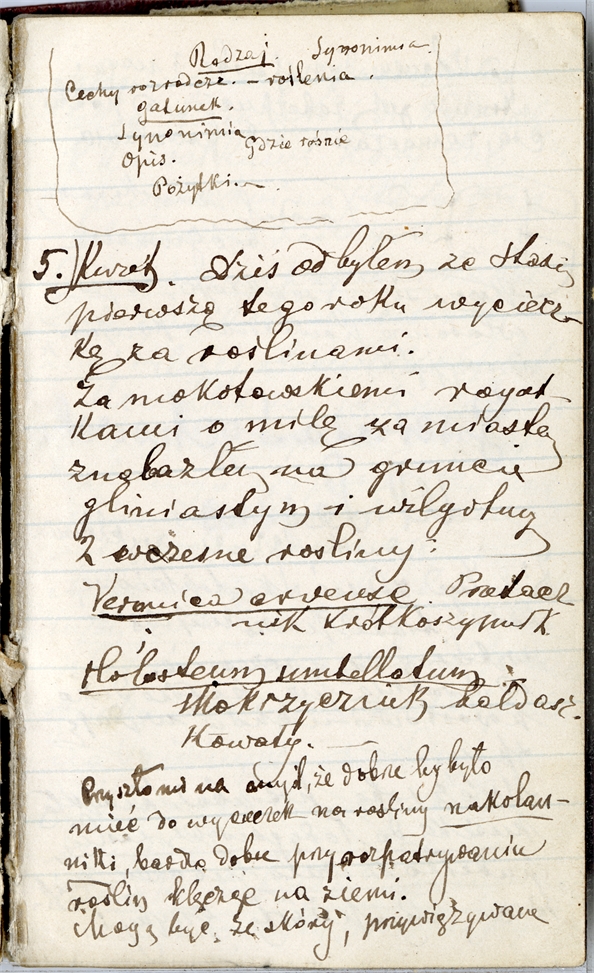 Rodzaj. Synonimia.
Cechy rozrodcze. – roślenia.
gatunek.
Synonimia Gdzie rośnie
Opis.
Pożytki.
5.) Kwiet. Dziś odbyłem ze Stasiem
pierwszą tego roku wyciecz-
kę za roślinami.
Za mokotowskiemi rogat
kami o milę za miastem
znalazłem na gruncie
gliniastym i wilgotnym
2 wczesne rośliny:
Veronica arvense Przetacz
nik krótkoszypułk.
Holosteum umbellatum
Mokrzycznik baldasz-
kowaty.
Przyszło mi na myśl, że dobrze by było
mieć do wycieczek na rośliny nakolan-
niki, bardzo dobre przy rozpatrywaniu
roślin klęcząc na ziemi.
Mogą być ze skóry, przywiązywane